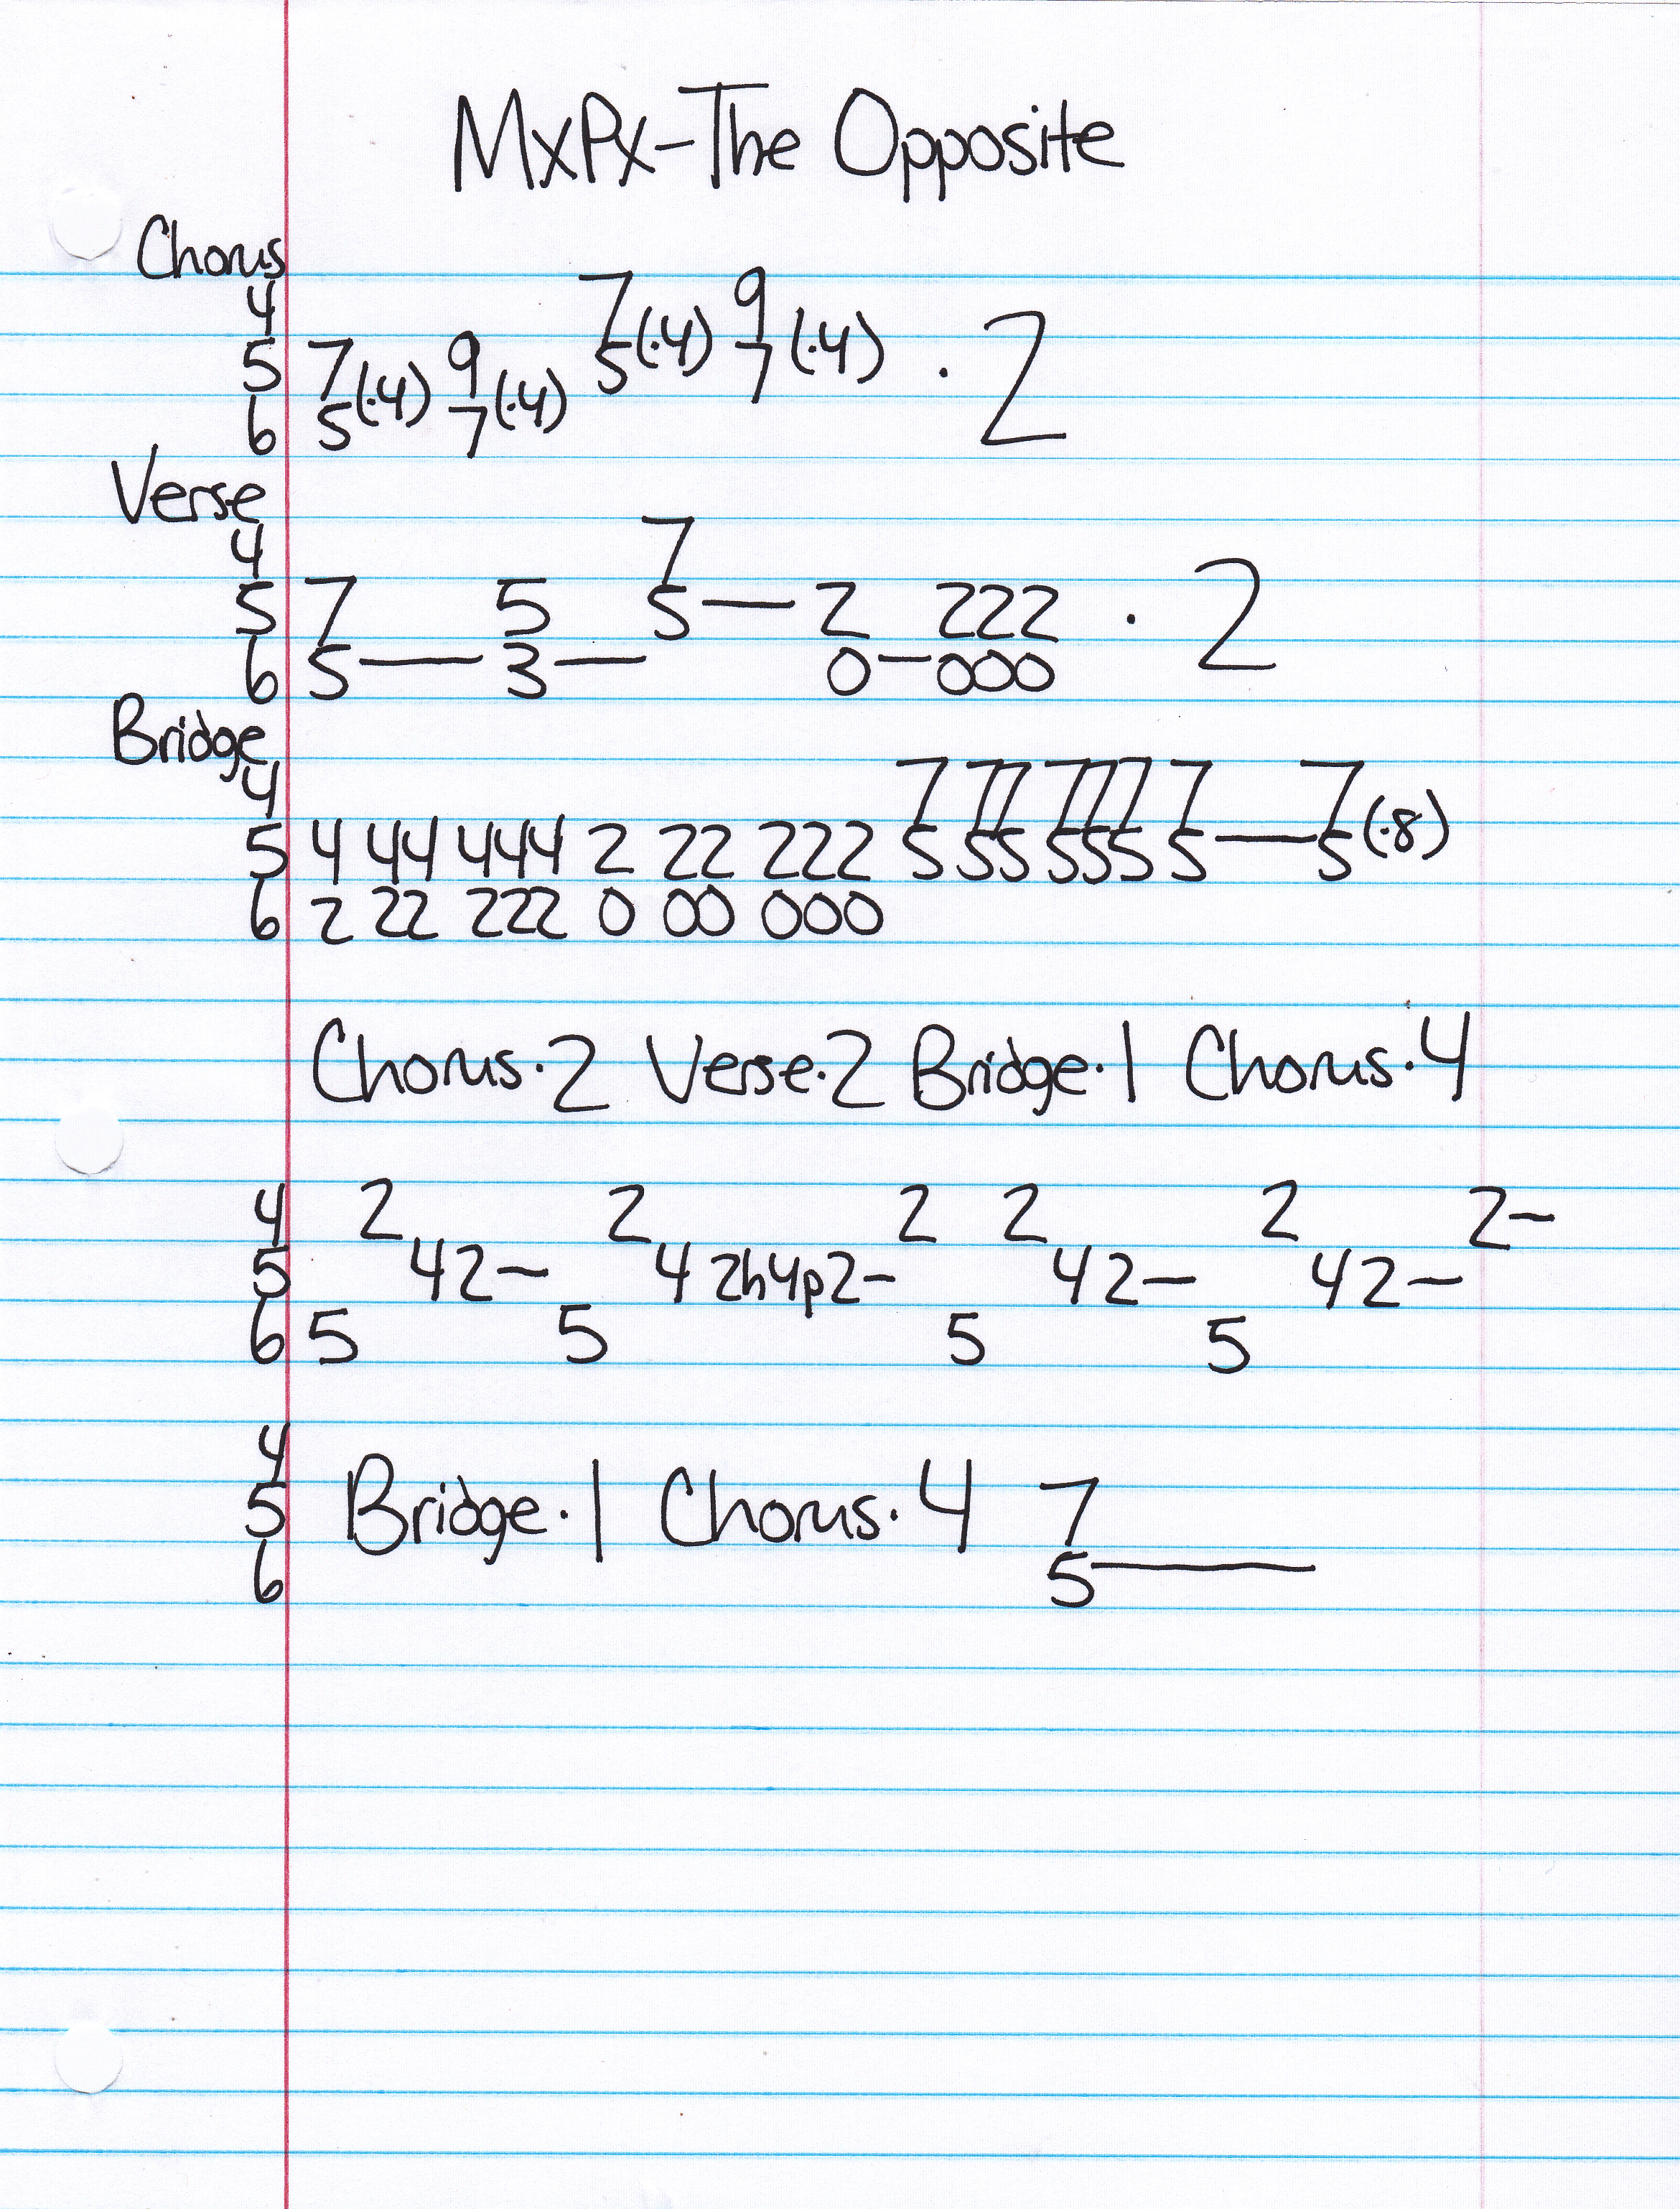 MxPx-The Opposite
Chorus
4 7(·4) 9(·4) · 2
5 7(·4) 9(·4) 5 7
6 5 7
Verse
4 7
5 7 5 5— 2 222 · 2
6 5— 3— 0-000
Bridge
4 7 77 777 7 7(·8)
5 4 44 444 2 22 222 5 55 555 5—5
6 2 22 222 0 00 000
Chorus·2 Verse·2 Bridge·1 Chorus·4
4 2 2 2 2 2 2-
5 42- 4 2h4p2- 42- 42-
6 5 5 5 5
4
5 Bridge·1 Chorus·4 7
6 5—